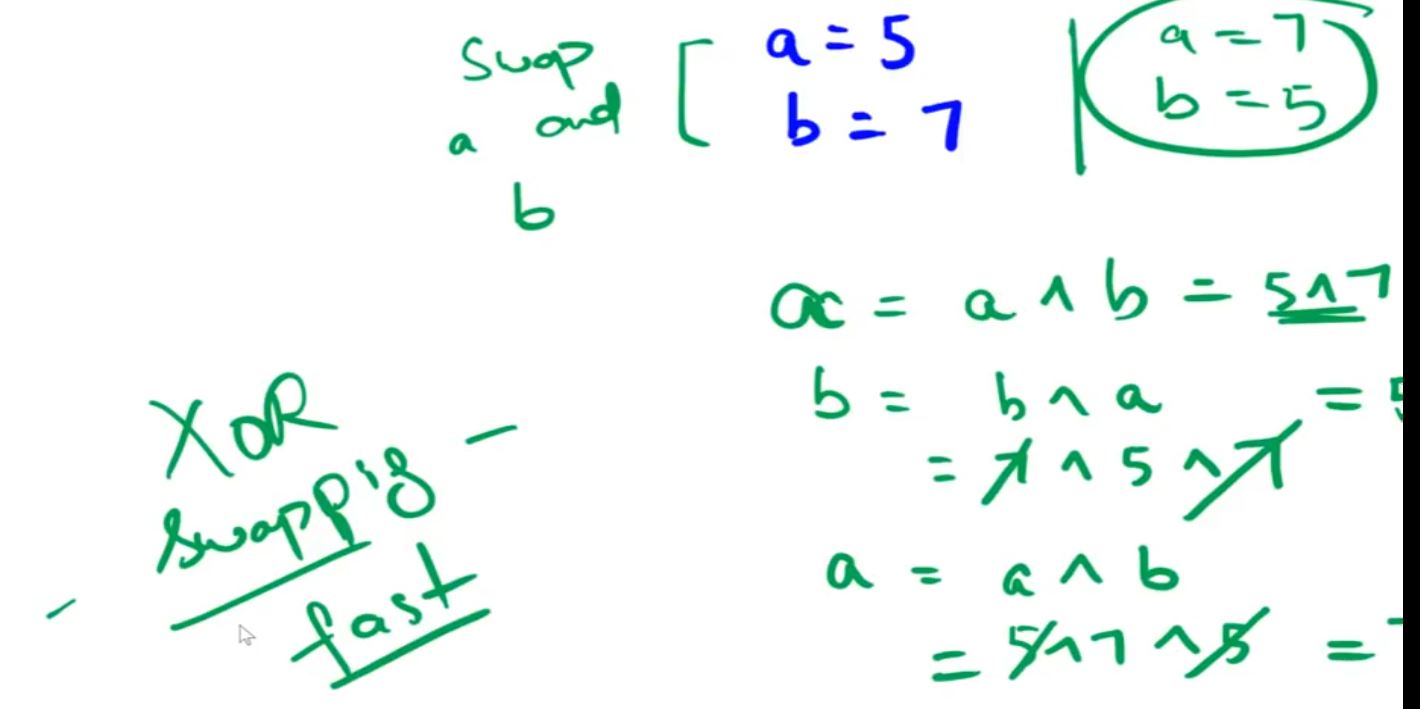 Swap
a and
b
a = 5
b = 7
a = 7
b = 5
a = a ^ b = 5^7
b = b ^ a =
= 7 ^ 5 ^ 7
a = a ^ b
= 5^7 ^ 5 =
XOR
swappig
fast